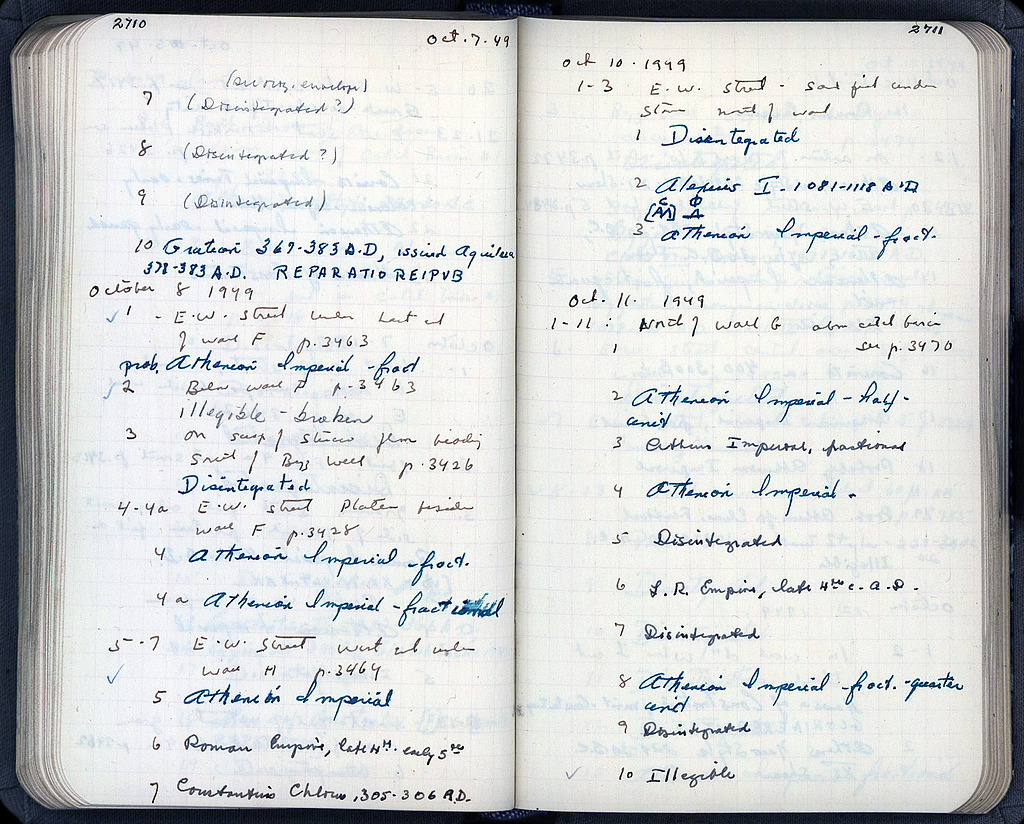 2710
Oct. 7. 49
(envelope)
7 (Disintegrated?)
8 (Disintegrated?)
9 (Disintegrated)
10 Gratian 367-383 A.D., issued Aquileia
378-383 A.D. REPARATIO REIPVB
October 8 1949
1 - E.W. Street under
of wall F p.3463
prob. Athenian Imperial - fract
2 Below wall p.3463
illegible - broken
3 on surf of
South of Byz well p.3426
Disintegrated
4-4a E.W. street Plaka beside
wall F p.3428
4 Athenian Imperial - fract.
4a Athenian Imperial - fractional
5-7 E.W. Street west under
wall H p.3464
5 Athenian Imperial
6 Roman Empire, late 4th - early 5th
7 Constantius Chlorus, 305-306 A.D.
2711
Oct 10. 1949
1-3 E.W. Street - under
north of wall
1 Disintegrated
2 Alexius I - 1081-1118 A.D
C Φ
Δ
3 Athenian Imperial - fract.
Oct. 11. 1949
1-11: North of wall G
1 see p.3470
2 Athenian Imperial - half-
unit
3 Athens Imperial, fractional
4 Athenian Imperial -
5 Disintegrated
6 L.R. Empire, late 4th c. A.D.
7 Disintegrated
8 Athenian Imperial - fract. - quarter
unit
9 Disintegrated
10 Illegible